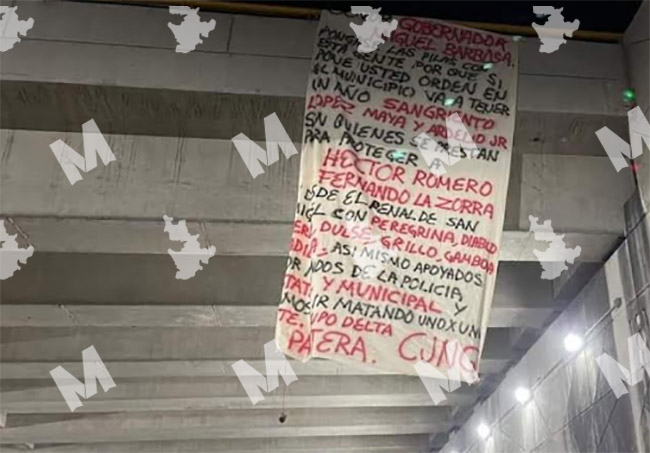 GOBERNADOR
MIGUEL BARBOSA.
PONGASE LAS PILAS CON
ESTA GENTE POR QUE SI
PONE USTED ORDEN EN
EL MUNICIPIO VA A TENER
UN AÑO SANGRIENTO
LOPEZ MAYA Y ARDELIO JR
SN QUIENES SE PRESTAN
PARA PROTEGER A
HECTOR ROMERO
FERNANDO LA ZORRA
SDE EL PENAL DE SAN
CON PEREGRINA, DIABLO
DULSE, GRILLO, GAMBOA
ASI MISMO APOYADOS
DOS DE LA POLICIA
TAT Y MUNICIPAL Y
MOS IR MATANDO UNO X UN
TE. UPO DELTA
PA ERA. CJNG
M
M
M
M
M
M
M